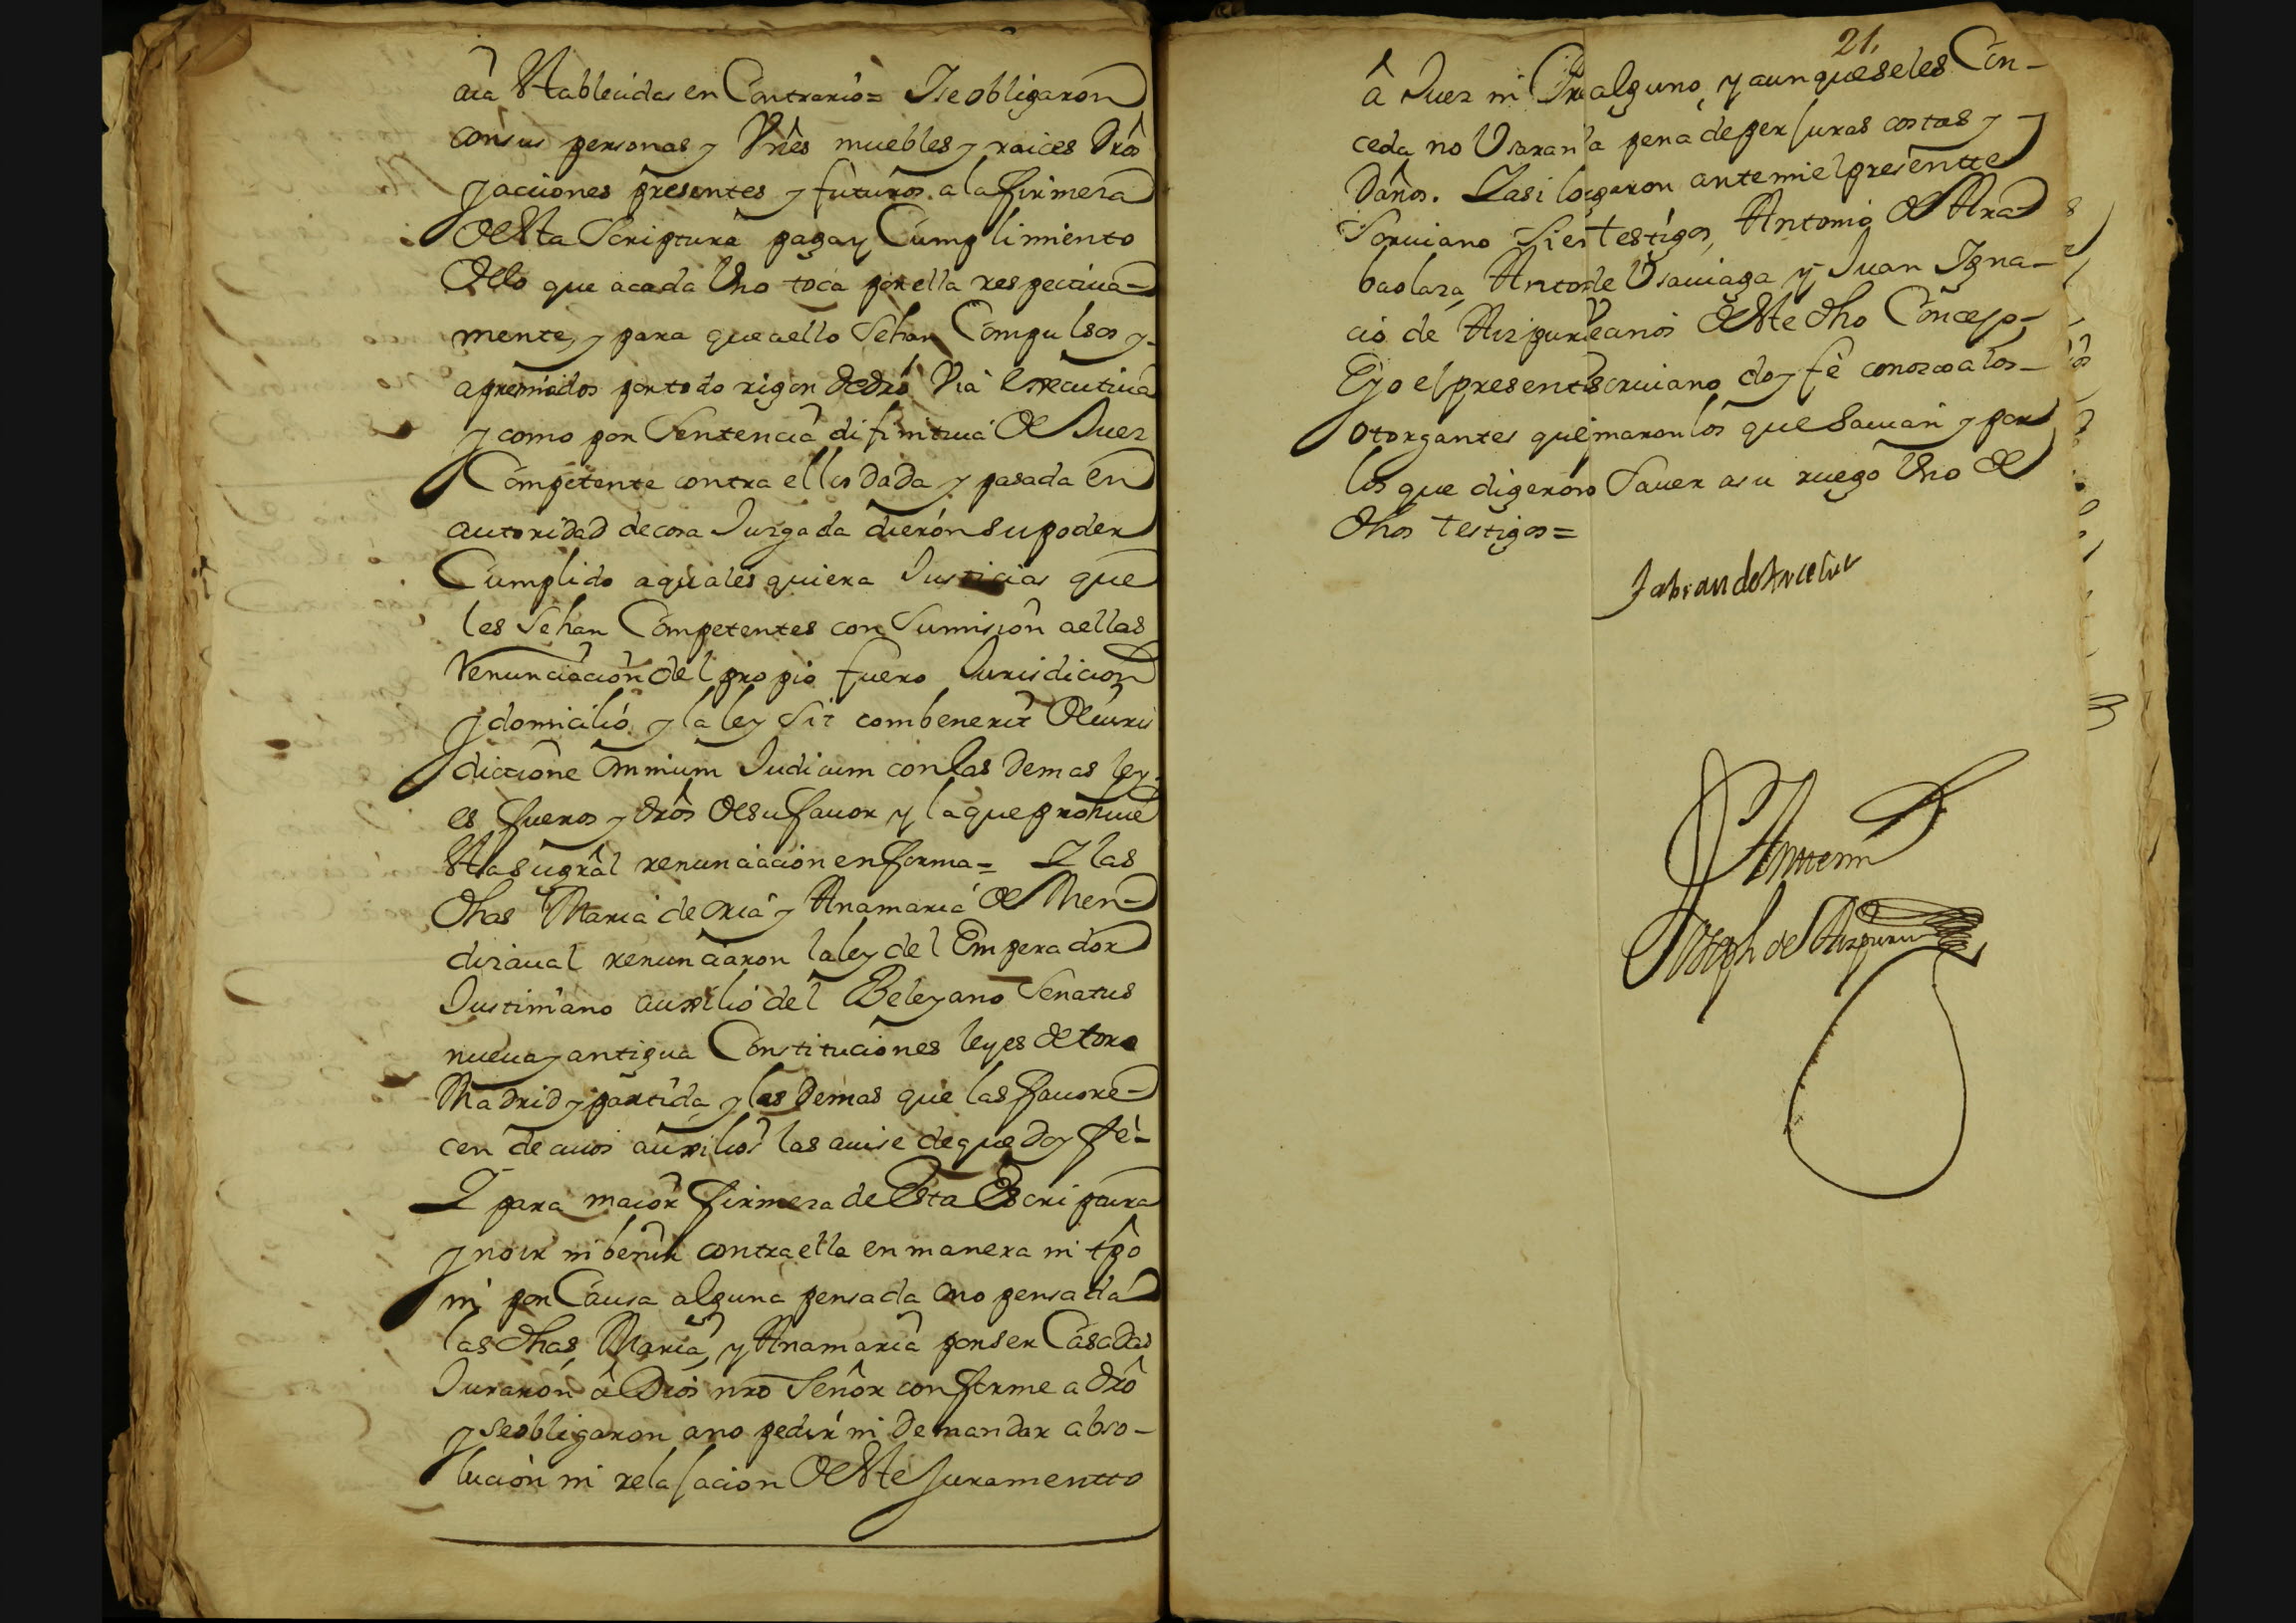 aia Stablecidas en Contrario = Ise obligaron
con sus personas y Vnês muebles y raices drôs
y acciones presentes y futuros a la firmeza
de Sta Scriptura paga y Cumplimiento
de lo que acada Vno toca por ella respectiua-
mente, y para que aello Sehan Compulsos y
apremiados por todo rigor de dro Via executiua
y como por Sentencia difinitiua de Juez
Competente contra ellos dada y pasada en
autoridad decosa Juzgada dierón su poder
Cumplido aquales quiera Justicias que
les Sehan Competentes con Sumisión aellas
Renunciación del propio fuero Jurisdicion
y domicilió y la ley Sit combenerit de iuris
dictione Omnium Judicum con las demas ley-
es fueros y drôs de su fauor y la que prohiue
Sta su grâl renunciación en forma = I las
dhas Maria de oria y Anamaria de Men-
dizaual renunciaron la ley del Emperador
Justiniano auxilio del Beleyano Senatus
nueua y antigua Constituciones leyes de toro
Madrid y partida y las demas que las fauore-
cen de cuios auxilios las auise de que doy fé-
I para maior firmeza de Esta Escriptura
y no ir ni benir contra ella en manera ni tpô
ni por Causa alguna pensada Ono pensada
las dhas Maria, y Anamaria por ser Casadas
Jurarón â Dios nro Señor conforme a drô
y se obligaron ano pedir ni demandar abso-
lución ni relajacion de Ste Juramentto
21,
â Juez ni alguno, y aunque se les Con-
ceda no Vsaran la pena de perjuras costas y
daños. I asi lo otgaron ante mi el presentte
Scruiano Sien testigos, Antonio de Ara
baolaza, Antonio de Vsauiaga y Juan Igna-
cio de Aizpuru Vecanos de Ste dho Concejo-
E yo el presente Scruiano doy fé conozco a los-
otorgantes que firmaron los que Sauian y por
los que digeron no Sauer a su ruego Vno de
dhos testigos =
Antemi
Joseph de Aizpuru